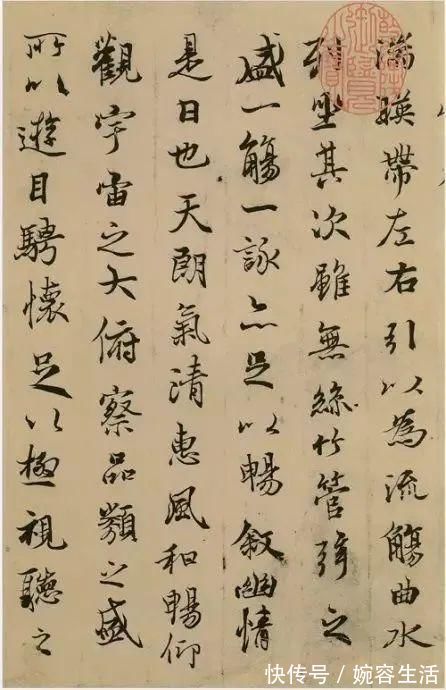 湍暎帶左右引以為流觴曲水
列坐其次雖無絲竹管弦之
盛一觴一詠亦足以暢叙幽情
是日也天朗氣清惠風和暢仰
觀宇宙之大俯察品類之盛
所以遊目騁懷足以極視聽之
快传号／婉容生活